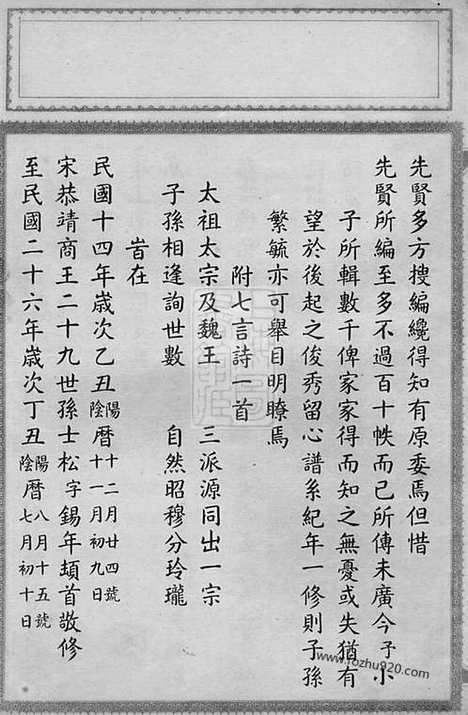 先賢多方搜編纔得知有原委焉但惜
先賢所編至多不過百十帙而已所傳未廣今子小
子所輯數千俾家家得而知之無憂或失猶有
望於後起之俊秀留心譜系紀年一修則子孫
繁毓亦可舉目明瞭焉
附七言詩一首
太祖太宗及魏王 三派源同出一宗
子孫相逢詢世數 自然昭穆分玲瓏
旹在
民國十四年歲次乙丑陽陰曆十二月廿四號十一月初九日
宋恭靖商王二十九世孫士松字錫年頓首敬修
至民國二十六年歲次丁丑陽陰曆八月十五號七月初十日
www.fozhu920.com